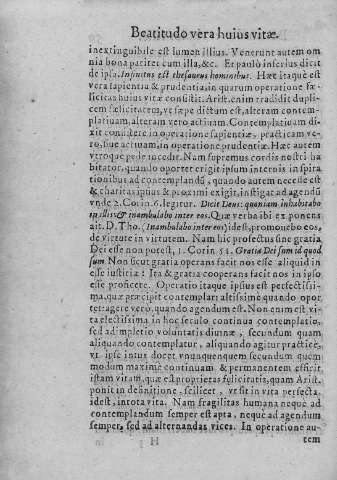 Beatitudo vera huius vitæ.
inextinguibile est lumen illius. Venerunt autem om
nia bona pariter cum illa, &c. Et paulò inferius dicit
de ipsa. Infinitus est thesaurus hominibus. Hæc itaque est
vera sapientia & prudentia, in quarum operatione fæ-
licitas huius vitæ consistit. Arist. enim tradidit duplic
em fælicitatem, vt sæpe dictum est, alteram contem-
platiuam, alteram vero actiuam. Contemplatiuam di-
xit consistere in operatione sapientiæ, practicam ve-
ro, siue actiuam, in operatione prudentiæ. Hæc autem
vtroque pede incedit. Nam supremus cordis nostri ha
bitator, quando oportet erigit ipsum internis inspira
tionibus ad contemplandũ, quando autem necesse est
& charitas ipsius & proximi exigit, instigat ad agendũ
vnde 2. Corin. 6. legitur. Dicit Deus: quoniam inhabitabo
in illis, & inambulabo inter eos. Quæ verba ibi exponens
ait D. Tho. (Inambulabo inter eos) idest, promouebo eos,
de virtute in virtutem. Nam hic profectus sine gratia
Dei esse non potest, 1. Corin. 15. Gratia Dei sum id quod
sum. Non sicut gratia operans facit nos esse aliquid in
esse iustitiæ! Ita & gratia cooperans facit nos in ipso
esse proficere. Operatio itaque ipsius est perfectissi-
ma, quæ præcipit contemplari altissimè quando opor
tet agere verò, quando agendum est. Non enim est vi-
ta electissima in hoc seculo continua contemplatio,
sed ad impletio voluntatis diuinæ, secundum quam
aliquando contemplatur, aliquando agitur practicè,
vt ipse intus docet vnumquenquem secundum quem
modum maximè continuam & permanentem efficit
istam vitam, quæ est proprietas felicitatis, quam Arist.
ponit in definitione, scilicet, vt sit in vita perfecta,
idest, in tota vita. Nam fragilitas humana neque ad
contemplandum semper est apta, neque ad agendum
semper, sed ad alternandas vices. In operatione au-
H
tem